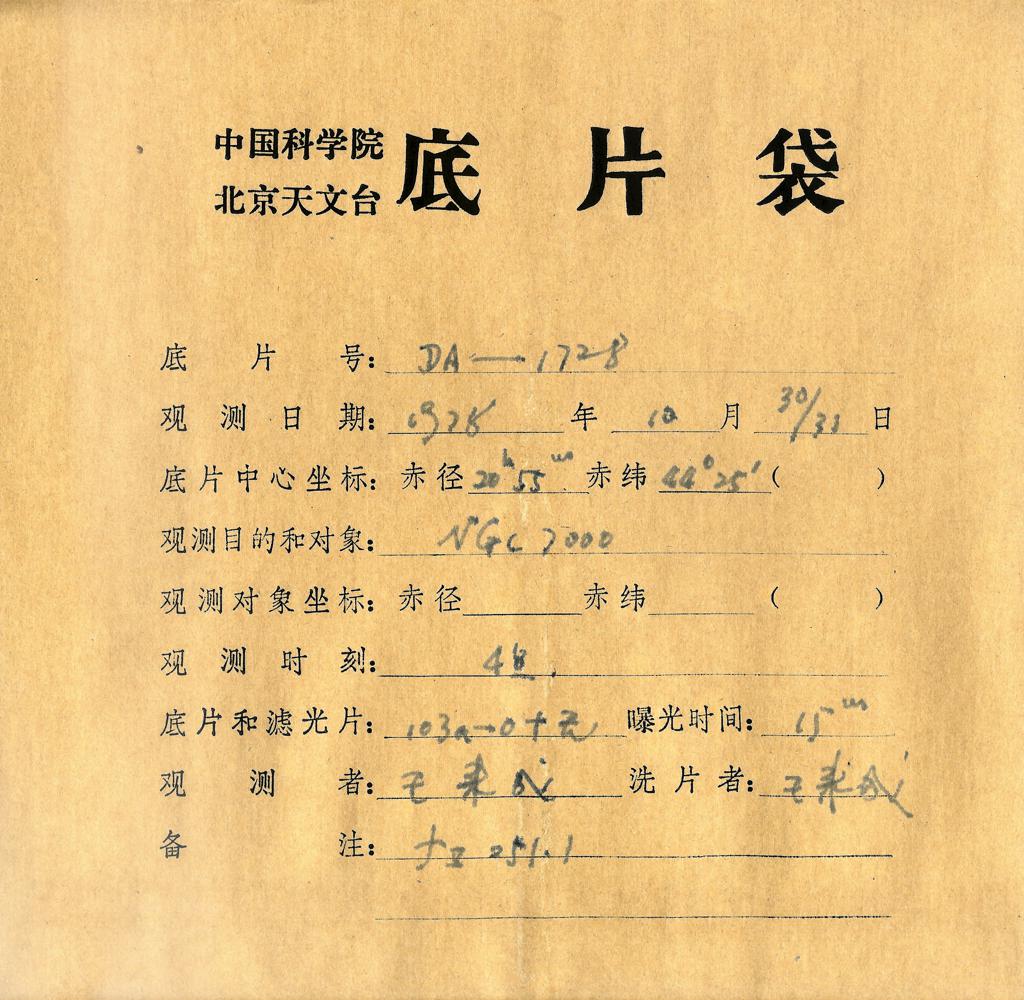 中国科学院
北京天文台
底片袋
底片号: DA—1728
观测日期: 1978 年 10 月 30/31 日
底片中心坐标: 赤径 20h 55m 赤纬 44° 25′ ( )
观测目的和对象: NGC 7000
观测对象坐标: 赤径 赤纬 ( )
观测时刻: 4
底片和滤光片: 103a-O+无 曝光时间: 15m
观测者: 王来 洗片者: 王来
备注: 251.1